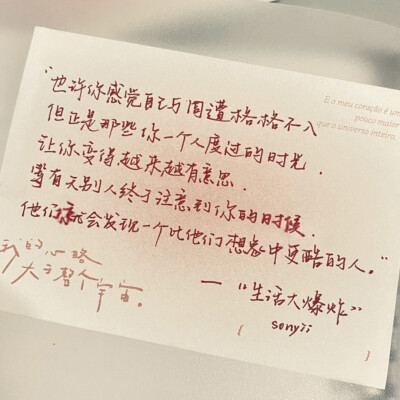 E o meu coração é um
pouco maior
que o universo inteiro.
"也许你感觉自己与周遭格格不入
但正是那些你一个人度过的时光.
让你变得越来越有意思.
等有天别人终于注意到你的时候.
他们就会发现一个比他们想象中更酷的人。"
我的心略
大于整个宇宙。
— "生活大爆炸"
sonyii
( )